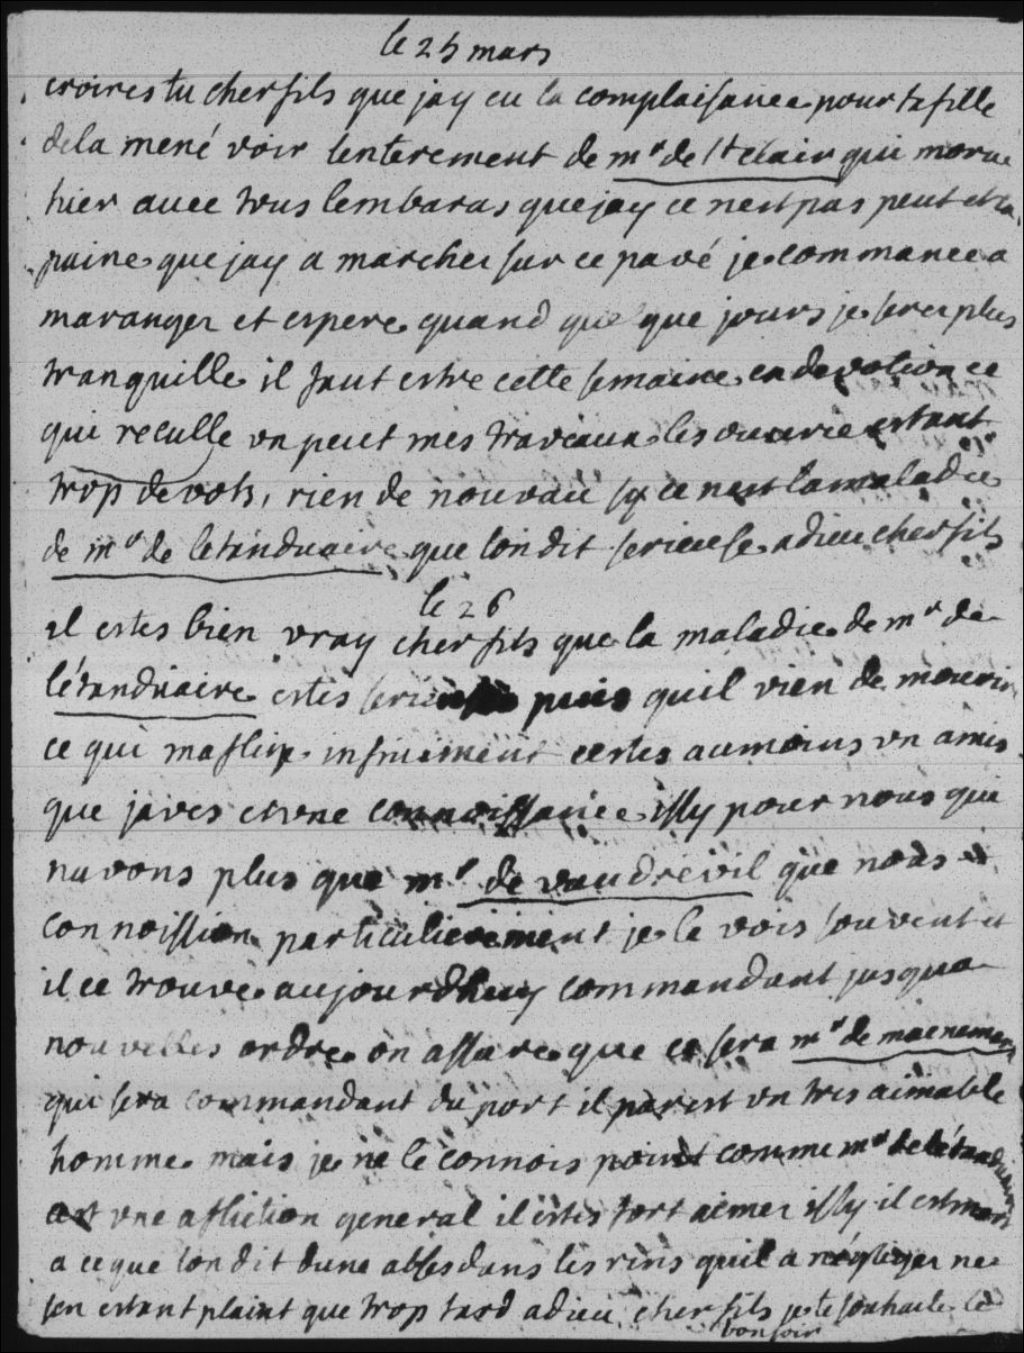 le 25 mars
croires tu cher fils que jay eu la complaisance pour ta fille
de la mené voir lenterement de mr de st clair qui moru
hier avec tous lembaras que jay ce nest pas peut et la
paine que jay a marcher sur ce pavé je commance a
maranger et espere quand quelque jours je serer plus
tranquille il faut estre cette semaine en devotion ce
qui reculle un peut mes traveaux les ouvrie estant
trop devots, rien de nouvau sy ce nest la maladie
de mr de letanduaire que lon dit serieuse adieu cher fils
le 26
il estes bien vray cher fils que la maladie de mr de
létanduaire estes serieuse puis quil vien de mourir
ce qui maflige infiniment cestes aumoins un amis
que javes et une connoissance issy pour nous qui
navons plus que mr de vaudrevil que nous
connoission particulierement je le vois souvent et
il ce trouve aujourdhuy commandant jusqua
nouvelles ordre on assure que ce sera mr de macnemara
qui sera commandant du port il parest un tres aimable
homme mais je ne le connois point comme mr de létanduaire
cest une afliction general il estes fort aimer issy il est mort
a ce que lon dit dune abses dans les rins quil a négliger ne
sen estant plaint que trop tard adieu cher fils je te souhaite le
bonsoir